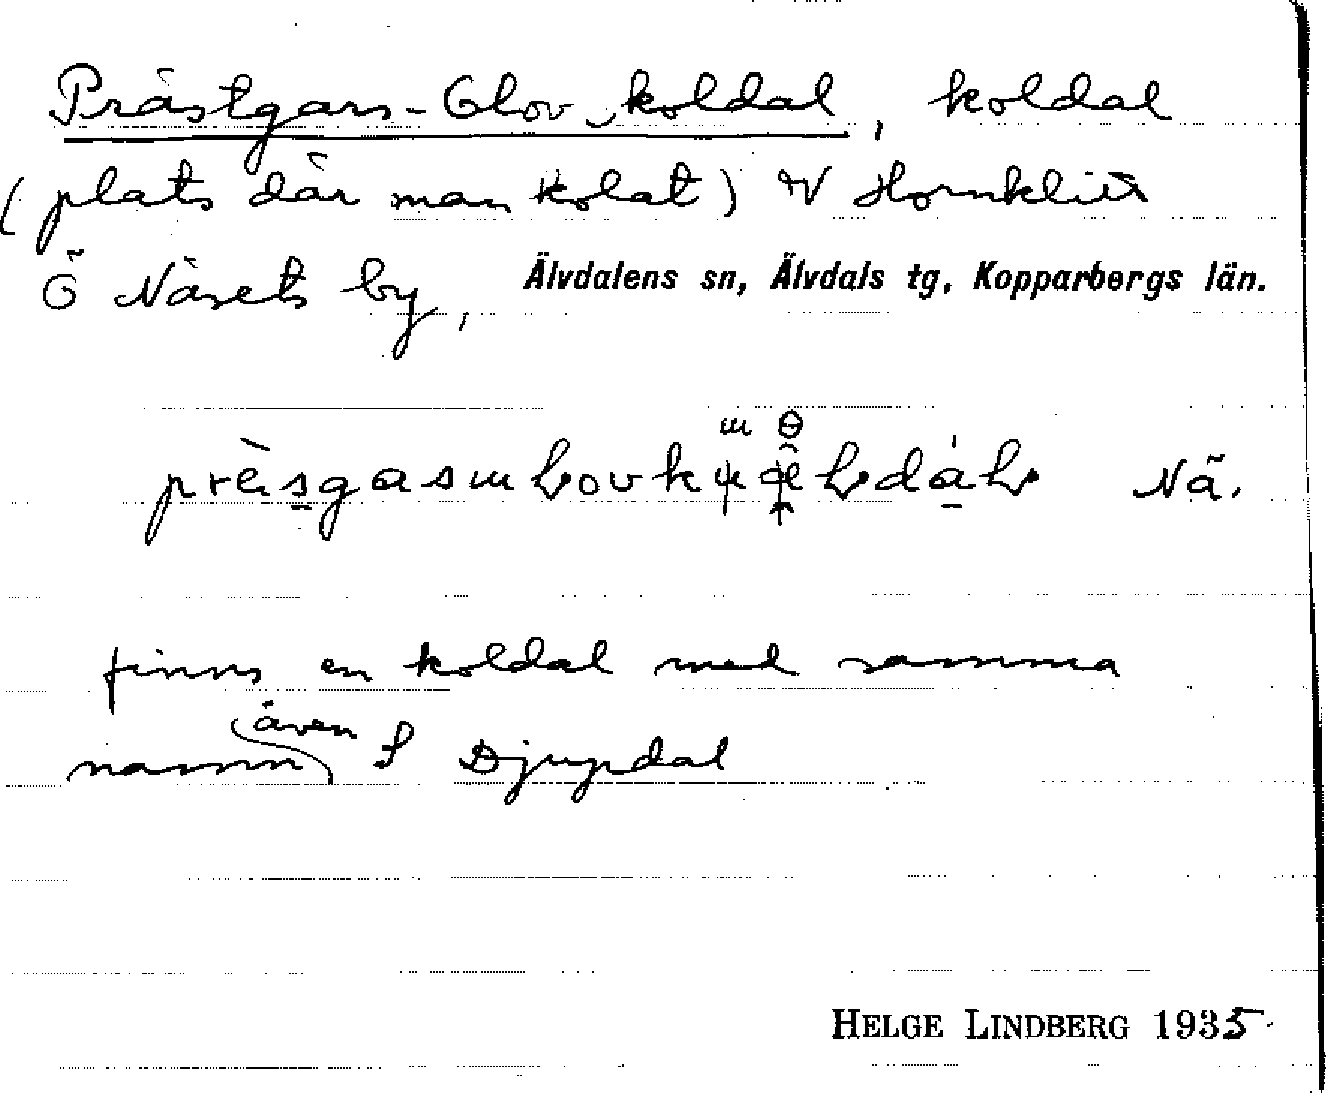 Prästgars-Olov koldal, koldal
(plats där man kolat) V Hornklitt
Ö Näsets by, Älvdalens sn, Älvdals tg, Kopparbergs län.
Nä.
finns en koldal med samma
namn även S Djupdal
HELGE LINDBERG 1935